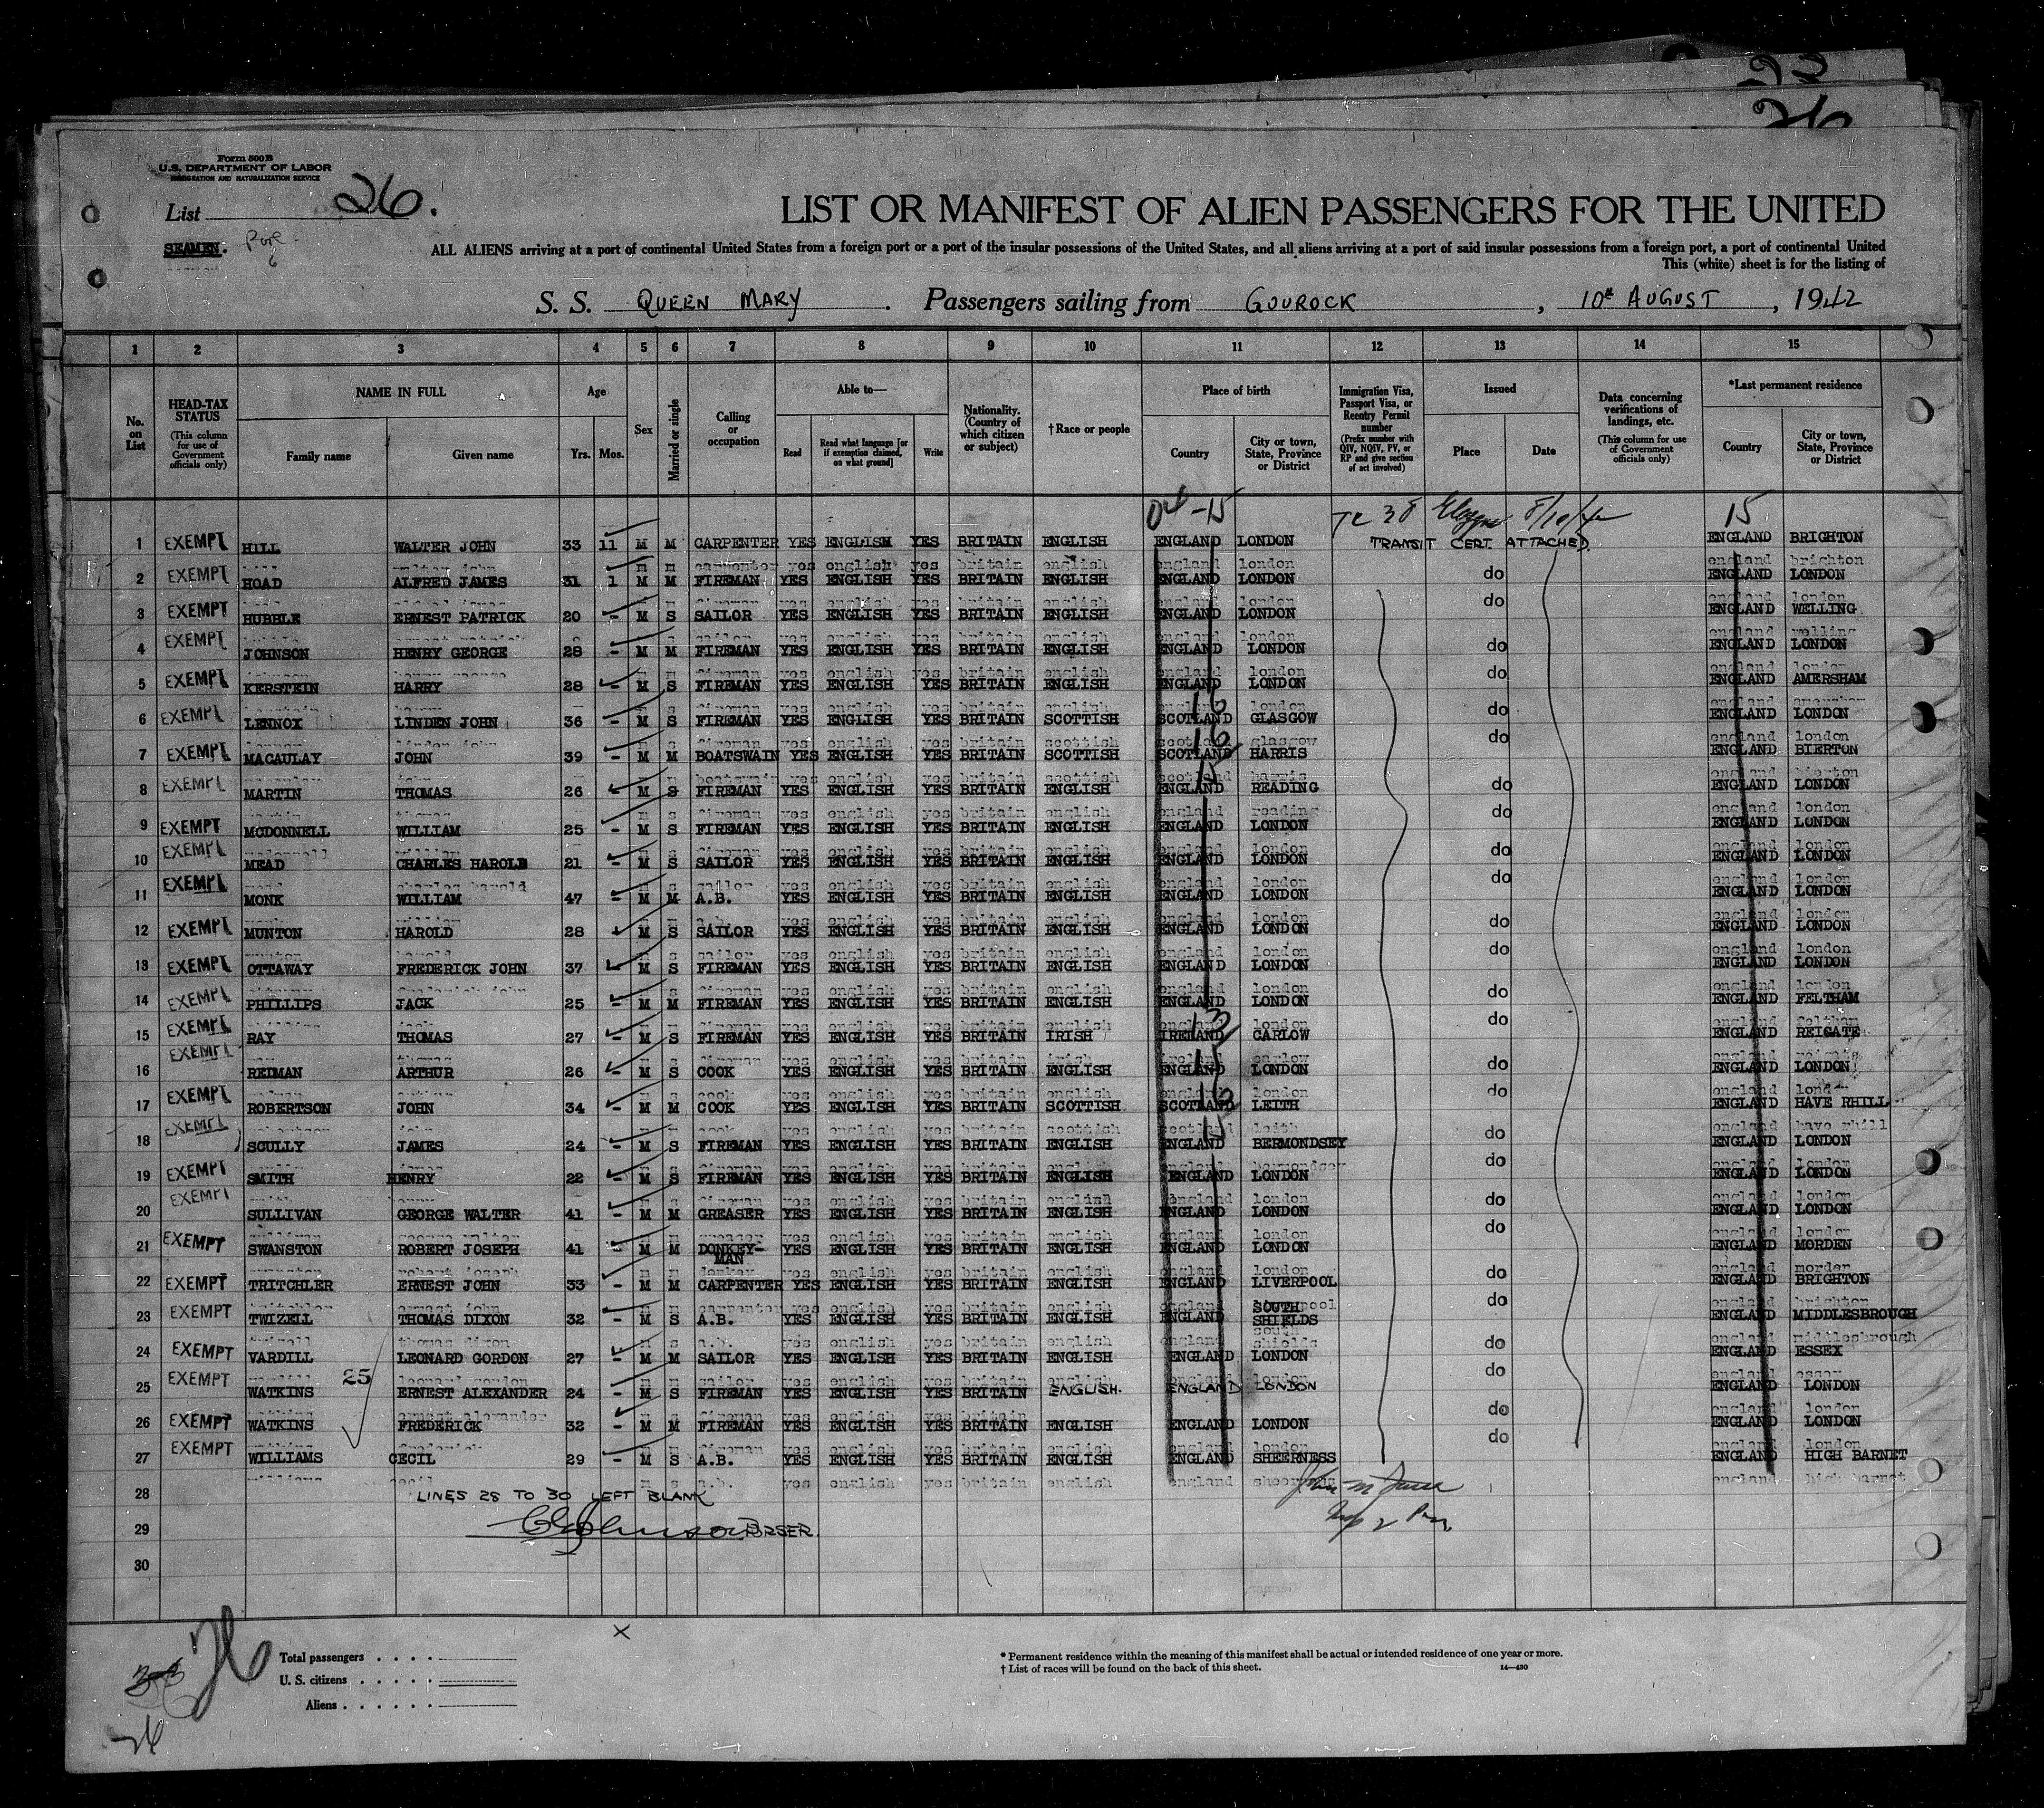 Form 500 B
U.S. DEPARTMENT OF LABOR
IMMIGRATION AND NATURALIZATION SERVICE
List 26.
SEAMEN.
LIST OR MANIFEST OF ALIEN PASSENGERS FOR THE UNITED
ALL ALIENS arriving at a port of continental United States from a foreign port or a port of the insular possessions of the United States, and all aliens arriving at a port of said insular possessions from a foreign port, a port of continental United
This (white) sheet is for the listing of
S. S. QUEEN MARY. Passengers sailing from GOUROCK, 10th AUGUST, 1942
1 2 3 4 5 6 7 8 9 10 11 12 13 14 15
No. on List
HEAD-TAX STATUS (This column for use of Government officials only)
NAME IN FULL Family name Given name
Age Yrs. Mos.
Sex
Married or single
Calling or occupation
Able to— Read Read what language [or if exemption claimed, on what ground] Write
Nationality. (Country of which citizen or subject)
†Race or people
Place of birth Country City or town, State, Province or District
Immigration Visa, Passport Visa, or Reentry Permit number (Prefix number with QIV, NQIV, PV, or RP and give section of act involved)
Issued Place Date
Data concerning verifications of landings, etc. (This column for use of Government officials only)
*Last permanent residence Country City or town, State, Province or District
15 15
1 EXEMPT HILL WALTER JOHN 33 11 M M CARPENTER YES ENGLISH YES BRITAIN ENGLISH ENGLAND LONDON TRANSIT CERT. ATTACHED. ENGLAND BRIGHTON
2 EXEMPT HOAD ALFRED JAMES 31 1 M M FIREMAN YES ENGLISH YES BRITAIN ENGLISH ENGLAND LONDON do ENGLAND LONDON
3 EXEMPT HUBBLE ERNEST PATRICK 20 - M S SAILOR YES ENGLISH YES BRITAIN ENGLISH ENGLAND LONDON do ENGLAND WELLING
4 EXEMPT JOHNSON HENRY GEORGE 28 - M M FIREMAN YES ENGLISH YES BRITAIN ENGLISH ENGLAND LONDON do ENGLAND LONDON
5 EXEMPT KERSTEIN HARRY 28 - M S FIREMAN YES ENGLISH YES BRITAIN ENGLISH ENGLAND LONDON do ENGLAND AMERSHAM
6 EXEMPT LENNOX LINDEN JOHN 36 - M S FIREMAN YES ENGLISH YES BRITAIN SCOTTISH SCOTLAND GLASGOW do ENGLAND LONDON
7 EXEMPT MACAULAY JOHN 39 - M M BOATSWAIN YES ENGLISH YES BRITAIN SCOTTISH SCOTLAND HARRIS do ENGLAND BIERTON
8 EXEMPT MARTIN THOMAS 26 - M S FIREMAN YES ENGLISH YES BRITAIN ENGLISH ENGLAND READING do ENGLAND LONDON
9 EXEMPT MCDONNELL WILLIAM 25 - M S FIREMAN YES ENGLISH YES BRITAIN ENGLISH ENGLAND LONDON do ENGLAND LONDON
10 EXEMPT MEAD CHARLES HAROLD 21 - M S SAILOR YES ENGLISH YES BRITAIN ENGLISH ENGLAND LONDON do ENGLAND LONDON
11 EXEMPT MONK WILLIAM 47 - M M A.B. YES ENGLISH YES BRITAIN ENGLISH ENGLAND LONDON do ENGLAND LONDON
12 EXEMPT MUNTON HAROLD 28 - M S SAILOR YES ENGLISH YES BRITAIN ENGLISH ENGLAND LONDON do ENGLAND LONDON
13 EXEMPT OTTAWAY FREDERICK JOHN 37 - M S FIREMAN YES ENGLISH YES BRITAIN ENGLISH ENGLAND LONDON do ENGLAND LONDON
14 EXEMPT PHILLIPS JACK 25 - M M FIREMAN YES ENGLISH YES BRITAIN ENGLISH ENGLAND LONDON do ENGLAND FELTHAM
15 EXEMPT RAY THOMAS 27 - M S FIREMAN YES ENGLISH YES BRITAIN IRISH IRELAND CARLOW do ENGLAND REIGATE
16 EXEMPT REDMAN ARTHUR 26 - M S COOK YES ENGLISH YES BRITAIN ENGLISH ENGLAND LONDON do ENGLAND LONDON
17 EXEMPT ROBERTSON JOHN 34 - M M COOK YES ENGLISH YES BRITAIN SCOTTISH SCOTLAND LEITH do ENGLAND HAVE RHILL
18 EXEMPT SCULLY JAMES 24 - M S FIREMAN YES ENGLISH YES BRITAIN ENGLISH ENGLAND BERMONDSEY do ENGLAND LONDON
19 EXEMPT SMITH HENRY 22 - M S FIREMAN YES ENGLISH YES BRITAIN ENGLISH ENGLAND LONDON do ENGLAND LONDON
20 EXEMPT SULLIVAN GEORGE WALTER 41 - M M GREASER YES ENGLISH YES BRITAIN ENGLISH ENGLAND LONDON do ENGLAND LONDON
21 EXEMPT SWANSTON ROBERT JOSEPH 41 - M M DONKEY-MAN YES ENGLISH YES BRITAIN ENGLISH ENGLAND LONDON do ENGLAND MORDEN
22 EXEMPT TRITCHLER ERNEST JOHN 33 - M M CARPENTER YES ENGLISH YES BRITAIN ENGLISH ENGLAND LIVERPOOL do ENGLAND BRIGHTON
23 EXEMPT TWIZELL THOMAS DIXON 32 - M S A.B. YES ENGLISH YES BRITAIN ENGLISH ENGLAND SOUTH SHIELDS do ENGLAND MIDDLESBROUGH
24 EXEMPT VARDILL LEONARD GORDON 27 - M M SAILOR YES ENGLISH YES BRITAIN ENGLISH ENGLAND LONDON do ENGLAND ESSEX
25 EXEMPT WATKINS 25 ERNEST ALEXANDER 24 - M S FIREMAN YES ENGLISH YES BRITAIN ENGLISH. ENGLAND LONDON do ENGLAND LONDON
26 EXEMPT WATKINS FREDERICK 32 - M M FIREMAN YES ENGLISH YES BRITAIN ENGLISH ENGLAND LONDON do ENGLAND LONDON
27 EXEMPT WILLIAMS CECIL 29 - M S A.B. YES ENGLISH YES BRITAIN ENGLISH ENGLAND SHEERNESS do ENGLAND HIGH BARNET
28 LINES 28 TO 30 LEFT BLANK
29 PURSER.
30
26
Total passengers
U. S. citizens
Aliens
* Permanent residence within the meaning of this manifest shall be actual or intended residence of one year or more.
† List of races will be found on the back of this sheet.
14—430